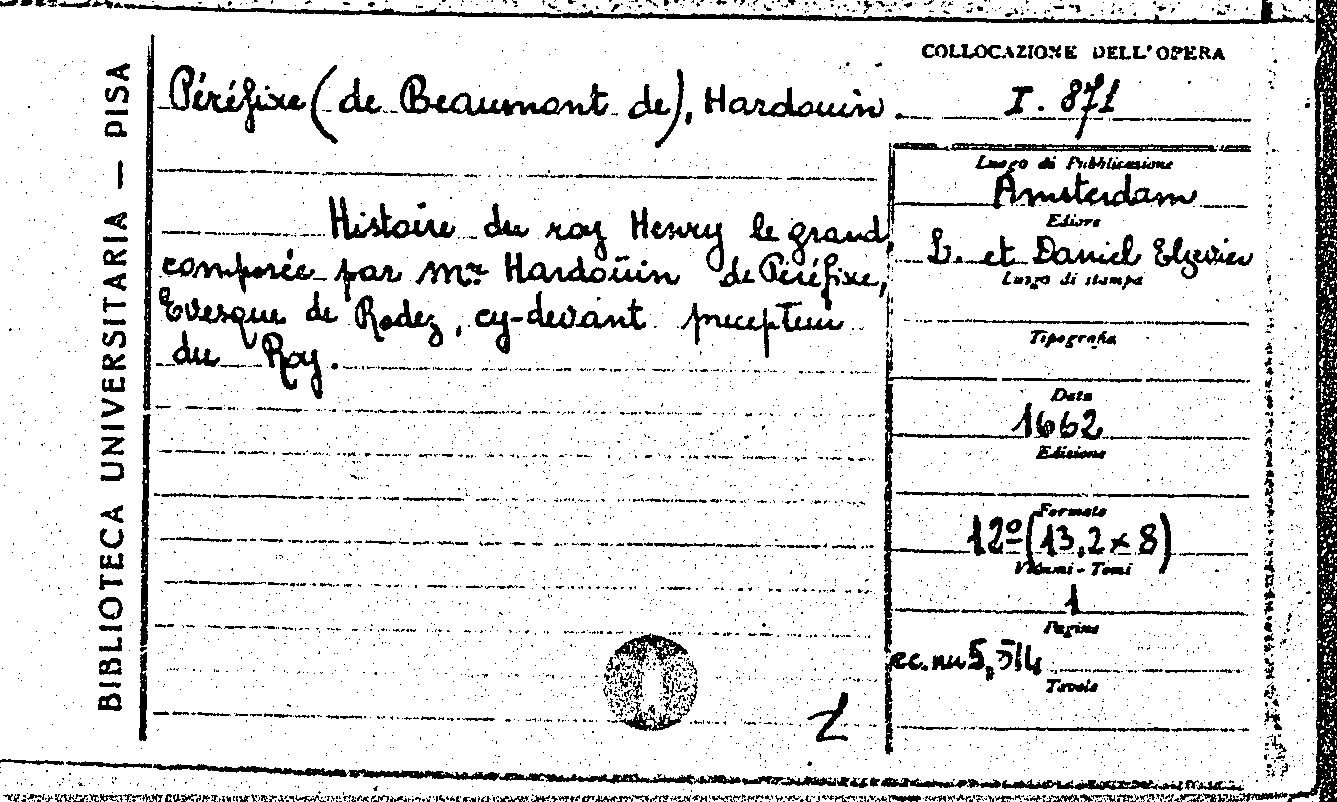 BIBLIOTECA UNIVERSITARIA — PISA
Péréfixe (de Beaumont de), Hardouin.
Histoire du roy Henry le grand,
composée par mr. Hardoüin de Péréfixe,
Evesque de Rodez, cy-devant precepteur
du Roy.
COLLOCAZIONE DELL'OPERA
I. 871
Luogo di Pubblicazione
Amsterdam
Editore
L. et Daniel Elzevier
Luogo di stampa
Tipografia
Data
1662
Edizione
Formato
12º (13,2 x 8)
Volumi - Tomi
1
Pagine
cc. nn 5, 514
Tavole